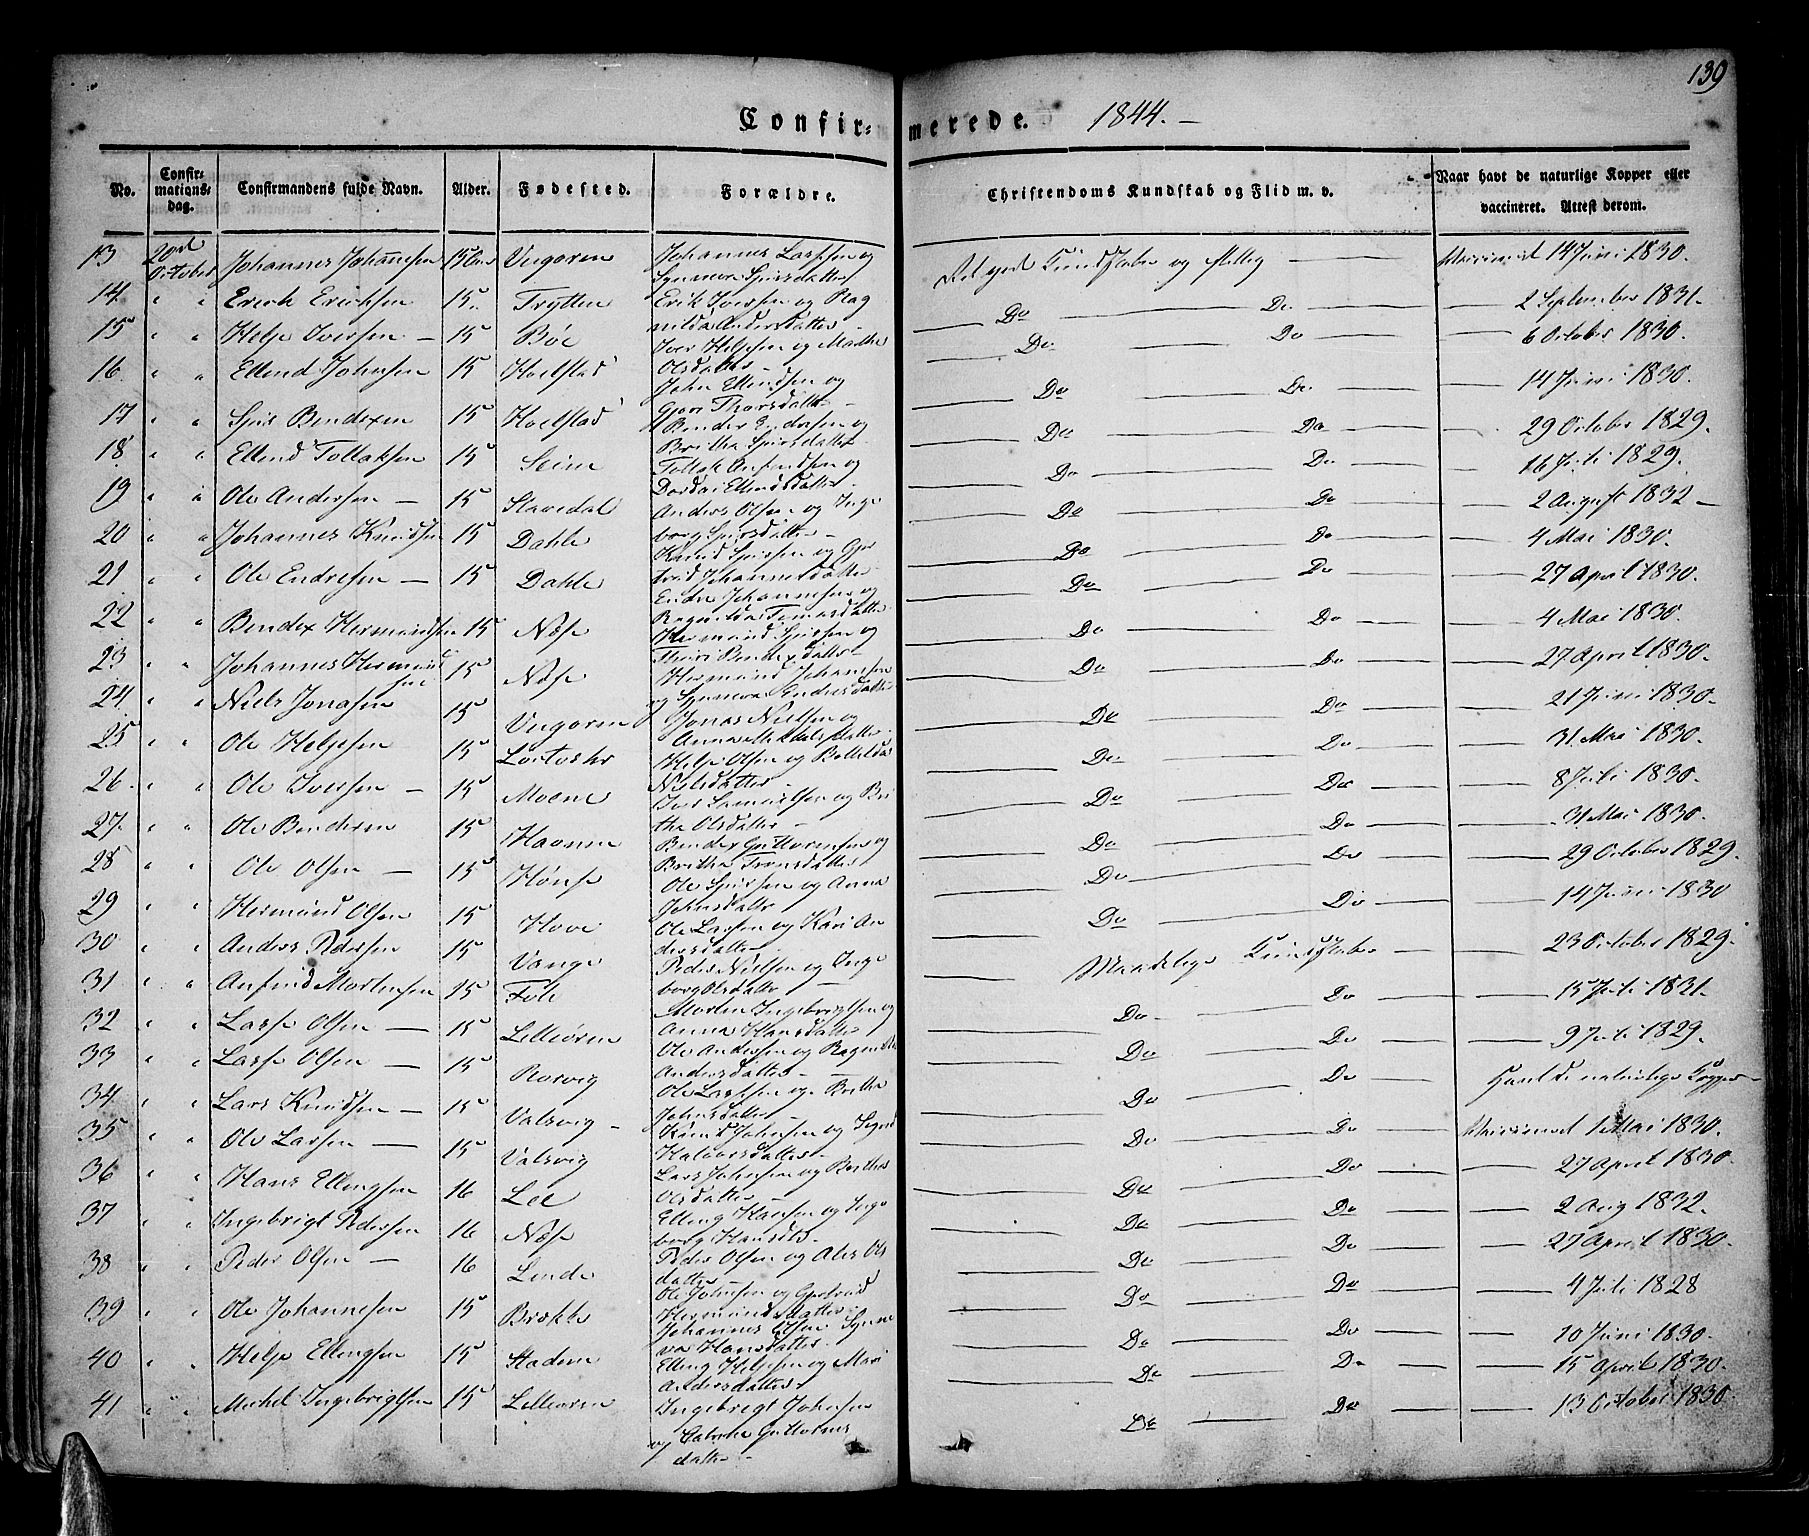 139
Confirmerede. 1844. —
No. Confirmationsdag. Confirmandens fulde Navn. Alder. Fødested. Forældre. Christendoms Kundskab og Flid m. v. Naar havt de naturlige Kopper eller vaccineret. Attest derom.
13 20de October Johannes Johannesen 15 Aar Johannes Larssen og 14 Juni 1830.
14. " " Erich Ericksen 15. Trytten Erik Iversen og Ragnilda Andersdatter — Do — Do — 2 September 1831.
15 " " Helje Iversen — 15 Bøe Iver Heljesen og Marthe Olsdatter — Do — Do — 6 October 1830.
16 " " Ellend Johnsen 15 Hoelstad John Ellendsen og — Do — Do — 14 Juni 1830.
17 " " Sjur Bendixen 15 Hoelstad Britha Sjursdatter — Do — Do — 29 October 1829.
18. " " Ellend Tollaksen 15 Seim Tollak Anfindsen og Ellendsdatter — Do — Do — 16 Juli 1829.
19 " " Ole Andersen — 15 Stavedal Anders Olsen og Ingeborg Sjursdatter — Do — Do — 2 August 1832 —
20 " " Johannes Knudsen 15 Dahle Knud Sjursen og Johannesdatter — Do — Do — 4 Mai 1830.
21 " " Ole Endresen — 15 Dahle Endre Johannesen og Ragnilda Tomasdatter — Do — Do — 27 April 1830.
22 " " Bendix Hermundsen 15 Næse Hermund Sjursen og Bendixdatter — Do — Do — 4 Mai 1830.
23 " " Johannes Hermundsen 15 Næse Hermund Johannsen og Synneva Endresdatter — Do — Do — 27 April 1830.
24. " " Niels Jonasen 15 Jonas Nielsen og Anna — Do — Do — 21 Juni 1830.
25 " " Ole Heljesen 15 Helje Olsen og Nielsdatter — Do — Do — 31 Mai 1830.
26 " " Ole Iversen — 15 Moene Iver Samuelsen og Britha Olsdatter — Do — Do — 8 Juli 1830.
27. " " Ole Bendixen 15 Bendix Guttormsen og Britha — Do — Do — 31 Mai 1830.
28 " " Ole Olsen — 15 Hønse Ole Sjursen og Anna Johnsdatter — Do — Do — 29 October 1829.
29 " " Hermund Olsen 15 Hove Ole Larsen og Kari Andersdatter — Do — Do — 14 Juni 1830
30 " " Anders Pedersen 15 Vange Peder Nielsen og Ingeborg Olsdatter — Maadelige Kundskaber — 23 October 1829.
31 " " Anfind Mortensen 15 Morten Ingebrigtsen og Anna Hansdatter — Do — Do — 15 Juli 1831.
32 " " Larse Olsen — 15 Lilleøren Ole Andersen og Andersdatter — Do — Do — 9 Juli 1829.
33 " " Larse Olsen 15 Rorvig Ole Larsen og Britha Johnsdatter — Do — Do — Havt de naturlige Kopper —
34 " " Lars Knudsen — 15 Valsvig — Knud Johnsen og Halvorsdatter — Do — Do — Vaccineret 1 Mai 1830.
35 " " Ole Larsen — 15 Valsvig Lars Johnsen og Olsdatter — Do — Do — 27 April 1830.
36 " " Hans Ellingsen 16 Lee Elling Hansen og Ingeborg Hansdtr. — Do — Do — 2 Aug 1832.
37 " " Ingebrigt Pedersen 16 Næse Peder Olsen og Olsdatter — Do — Do — 27 April 1830.
38 " " Peder Olsen — 16 Linde Ole Johnsen og Hermundsdatter — Do — Do — 4 Juli 1828
39 " " Ole Johannesen 15 Brække Johannes Olsen Synneva Hansdatter. — Do — Do — 10 Juni 1830.
40 " " Helje Ellingsen 15 Stadem Elling Heljesen og Mari Andersdatter — Do — Do — 15 April 1830.
41 " " Michel Ingebrigtsen 15 Lilleøren Ingebrigt Johnsen og Guttormsdatter — Do — Do — 13 October 1830